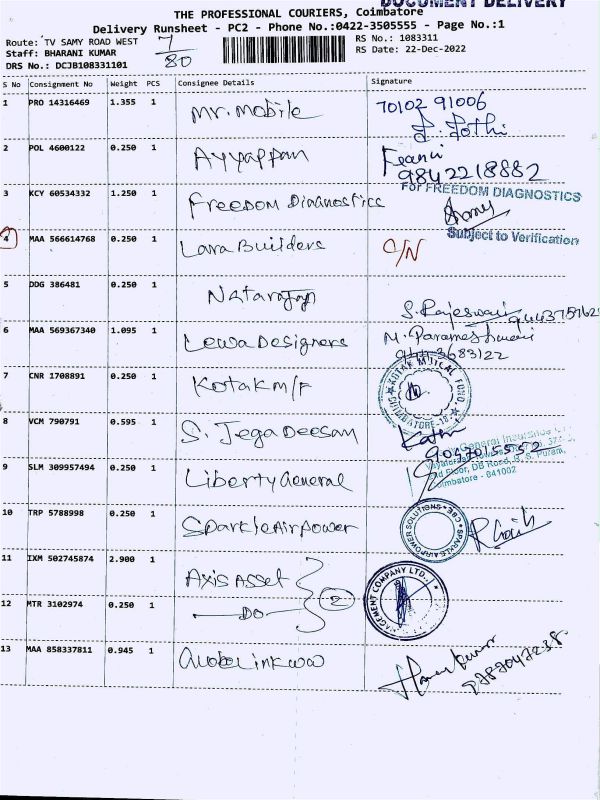 DOCUMENT DELIVERY
THE PROFESSIONAL COURIERS, Coimbatore
Delivery Runsheet - PC2 - Phone No.:0422-3505555 - Page No.:1
Route: TV SAMY ROAD WEST 7/80 RS No.: 1083311
Staff: BHARANI KUMAR RS Date: 22-Dec-2022
DRS No.: DCJB108331101
S No Consignment No Weight PCS Consignee Details Signature
1 PRO 14316469 1.355 1 Mr. Mobile 70102 91006
P. Pothi
2 POL 4600122 0.250 1 Ayyappan
9842218882
3 KCY 60534332 1.250 1 Freedom Diagnostics For FREEDOM DIAGNOSTICS
Subject to Verification
4 MAA 566614768 0.250 1 Lara Builders C/N
5 DDG 386481 0.250 1 Natarajan S. Rajeswari
6 MAA 569367340 1.095 1 Lewa Designers M. Parameshwari
7 CNR 1708891 0.250 1 Kotak M/F KOTAK MUTUAL FUND COIMBATORE-18
8 VCM 790791 0.595 1 S. Jega Deesan
9047015552
9 SLM 309957494 0.250 1 Liberty General Liberty General Insurance
2nd Floor, DB Road, R. S. Puram,
Coimbatore - 641002
10 TRP 5788998 0.250 1 Sparkle Air Power SPARKLE AIRPOWER SOLUTIONS CBE
11 IXM 502745874 2.900 1 Axis Asset
12 MTR 3102974 0.250 1 DO 2 AGEMENT COMPANY LTD.
13 MAA 858337811 0.945 1